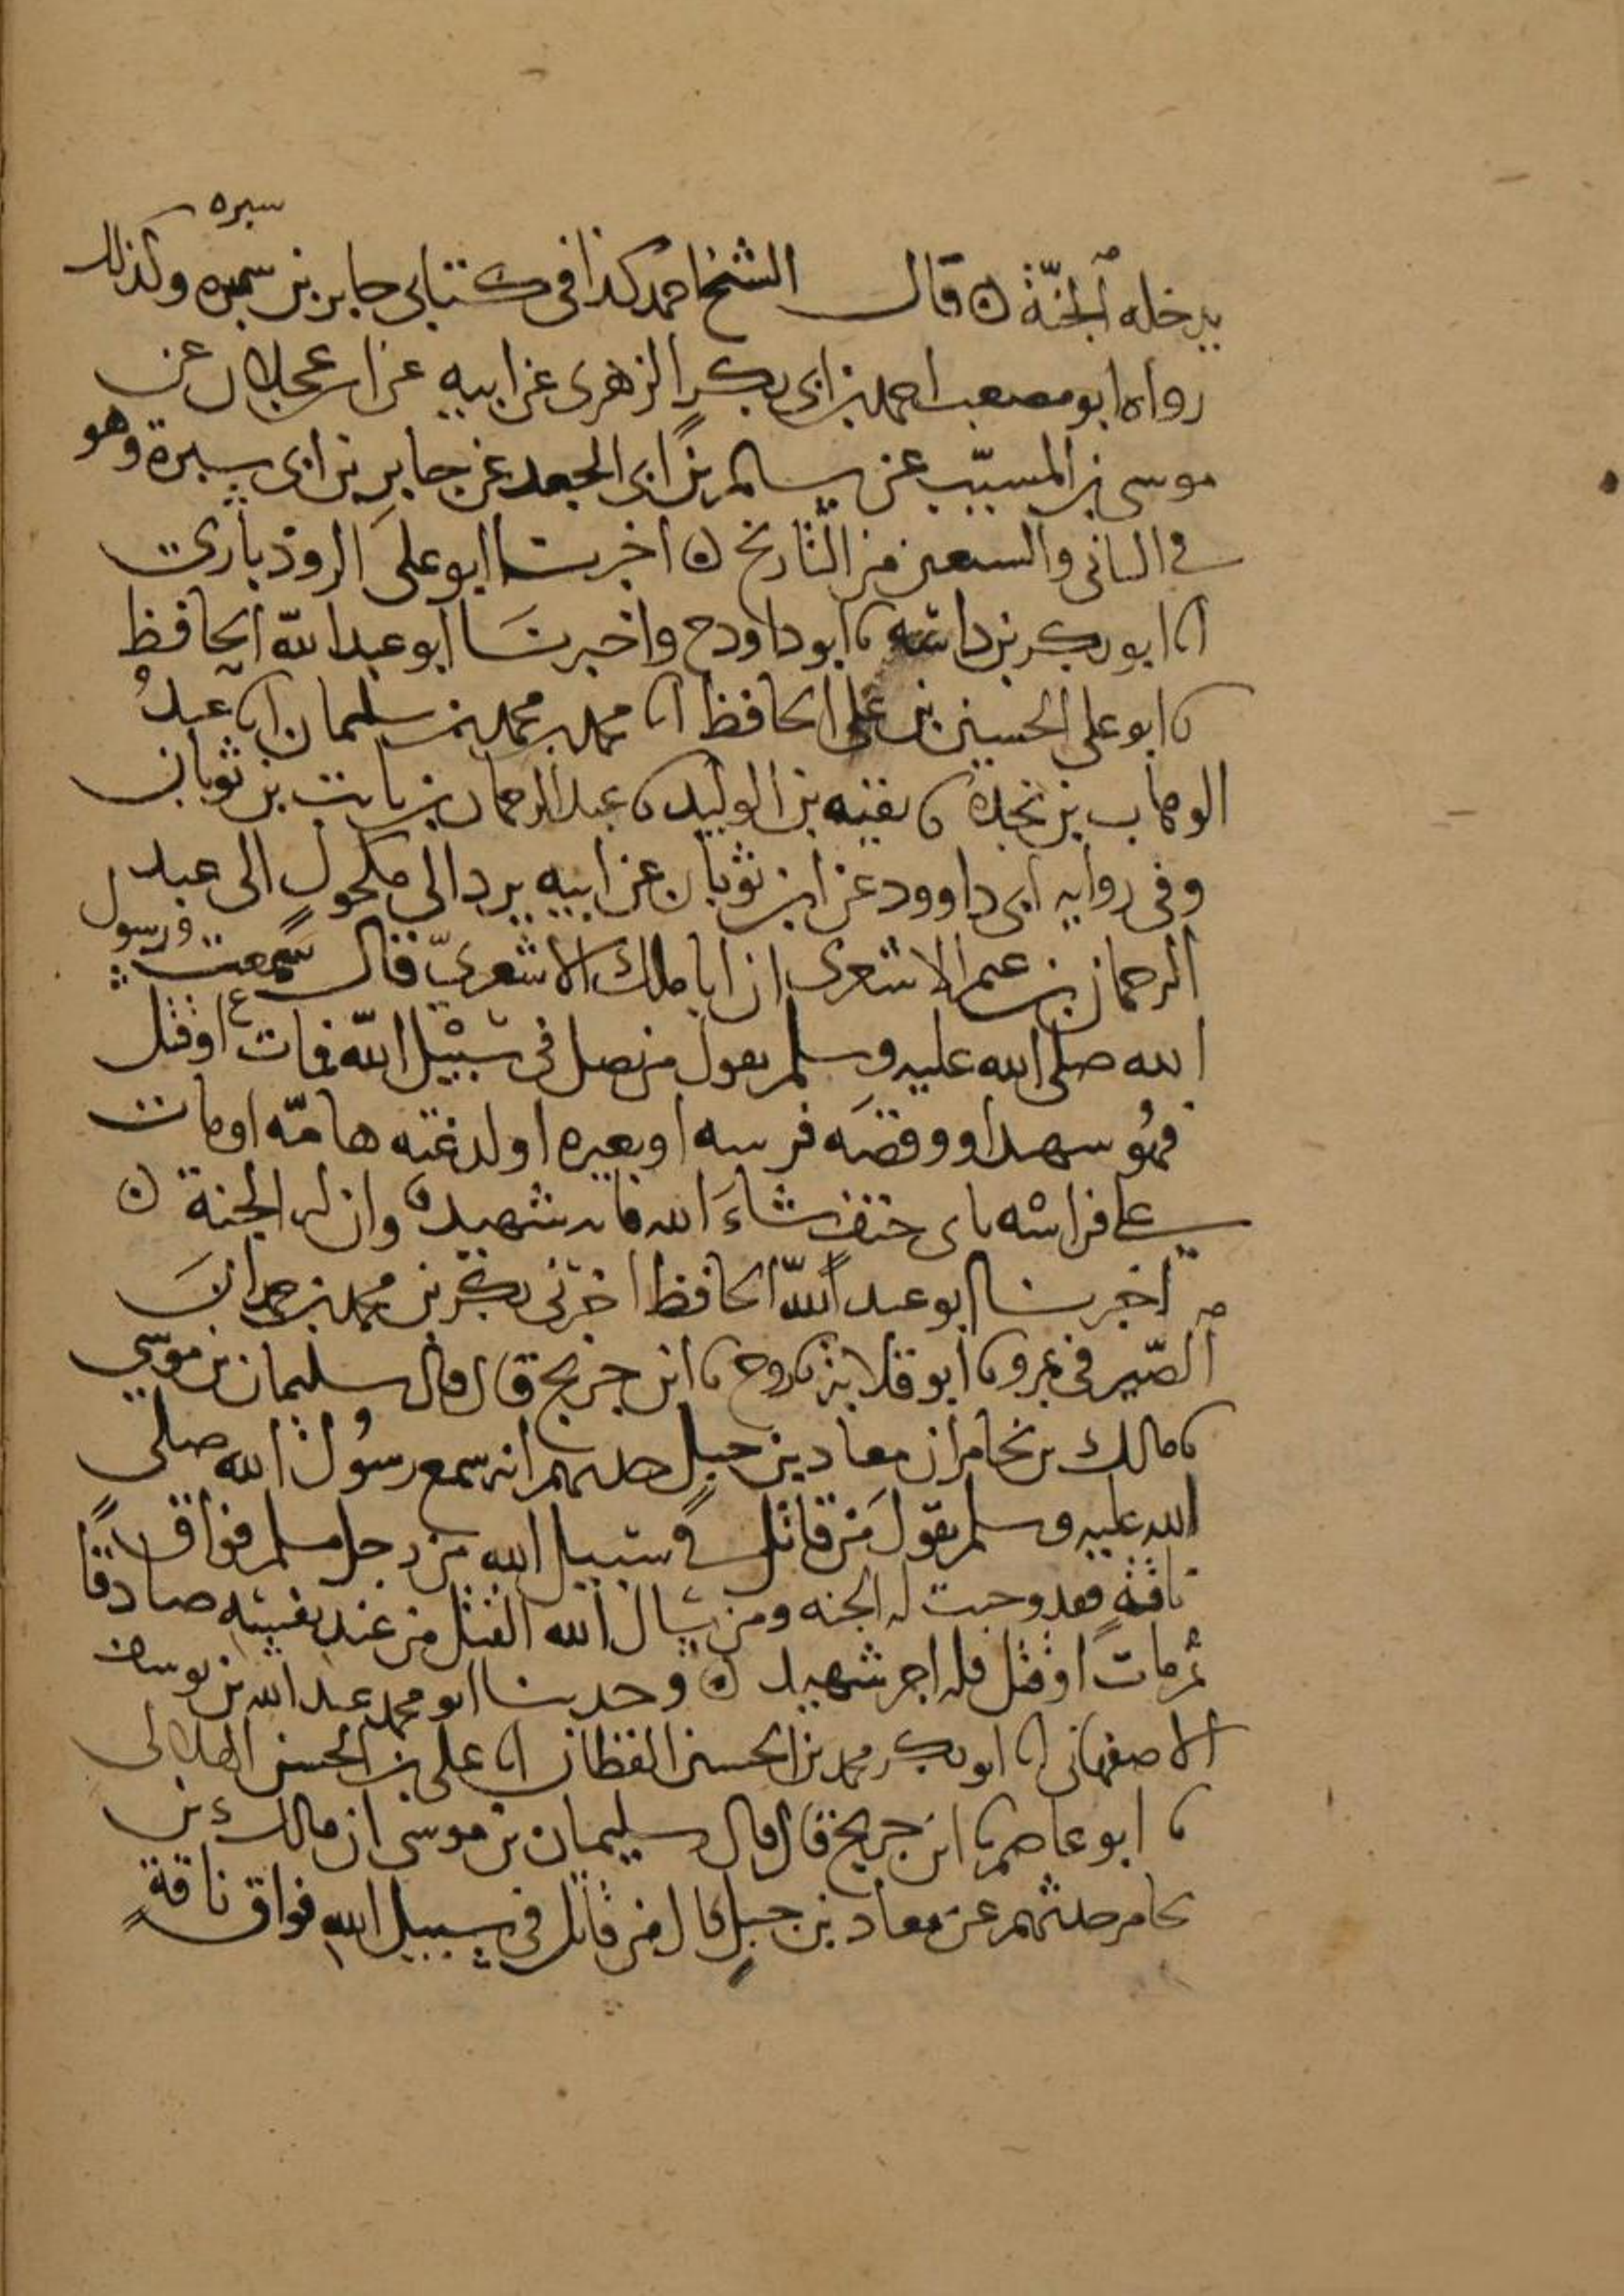 سبره
يدخله الجنّة ه قال الشيخ احمد كذا في كتابي جابر بن سمره وكذلك
رواه ابو مصعب احمد بن ابي بكر الزهري عن ابيه عن ابن عجلان عن
موسى بن المسيّب عن سالم بن ابي الجعد عن جابر بن ابي سبرة وهو
في الثاني والسبعين من التاريخ ه اخبرنا ابو علي الروذباري
انا ابو بكر بن داسه نا ابو داود ح واخبرنا ابو عبد الله الحافظ
نا ابو علي الحسين بن علي الحافظ انا محمد بن محمد بن سليمان نا عبدُ
الوهاب بن نجدة نا بقيه بن الوليد نا عبد الرحمان بن ثابت بن ثوبان
وفي روايه ابي داوود عن ابن ثوبان عن ابيه يرد الى مكحول الى عبد
الرحمان بن غنم الاشعري ان ابا ملك الاشعريّ قال سمعت رسول
الله صلى الله عليه وسلم يقول من فصل في سبيل الله فمات او قتل
فهُو شهيد او وقصَه فرسه او بعيره او لدغته هامّه او مات
على فراشه باي حتف شاءَ الله فانه شهيد وان له الجنة ه
اخبرنا ابو عبد الله الحافظ اخبرني بكر بن محمد بن حمدان
الصّيرفي بمرو نا ابو قلابة نا روح نا ابن جريج قال قال سليمان بن موسى
نا مالك بن يخامر ان معاذ بن جبل حدثهم انه سمع رسُول الله صلى
الله عليه وسلم يقول مَن قاتل في سبيل الله من رجل مسلم فواق
ناقةٍ فقد وجبت له الجنه ومن سال الله القتل من عند نفسه صادقًا
ثم مات او قتل فله اجر شهيد ه وحدثنا ابو محمد عبد الله بن يوسف
الاصفهاني انا ابو بكر محمد بن الحسين القطان انا علي بن الحسن الهلالي
نا ابو عاصم نا ابن جريج قال قال سليمان بن موسى ان مالك بن
يخامر حدثهم عن معاذ بن جبلٍ قال من قاتل في سبيل الله فواق ناقةٍ